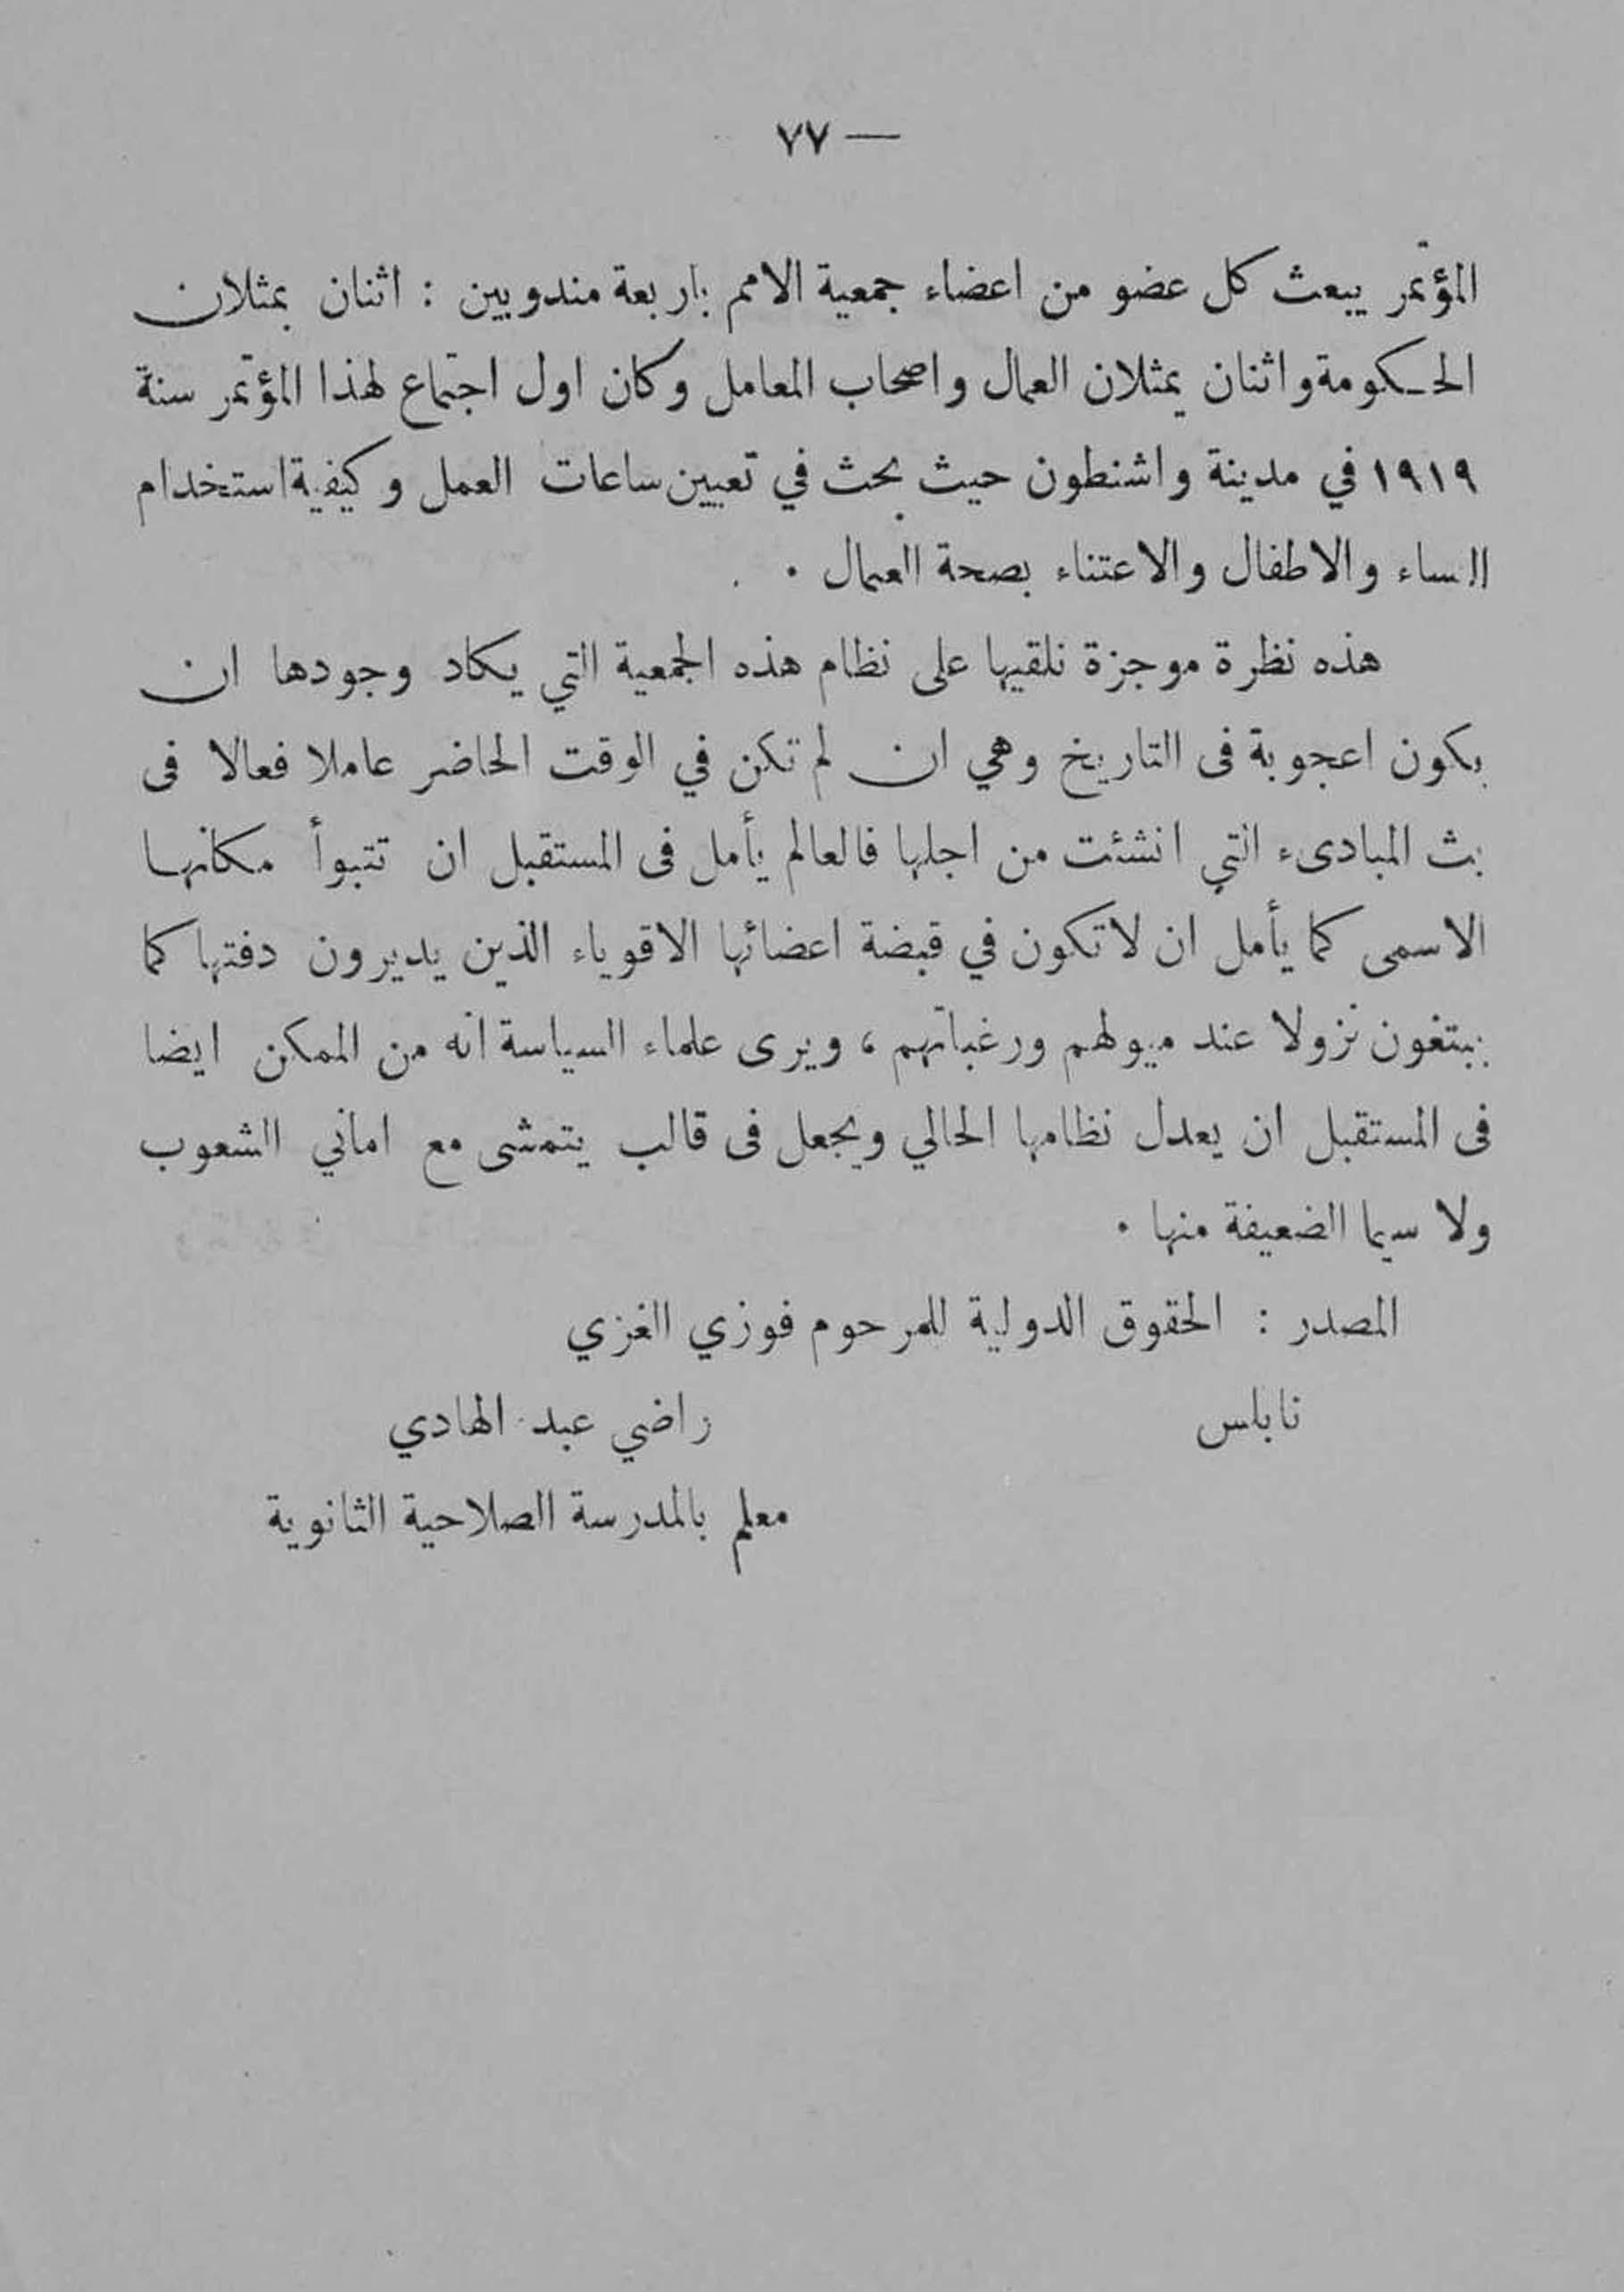 — ٧٧
المؤتمر يبعث كل عضو من اعضاء جمعية الامم باربعة مندوبين : اثنان يمثلان
الحكومة واثنان يمثلان العمال واصحاب المعامل وكان اول اجتماع لهذا المؤتمر سنة
١٩١٩ في مدينة واشنطون حيث بحث في تعيين ساعات العمل وكيفية استخدام
النساء والاطفال والاعتناء بصحة العمال .
هذه نظرة موجزة نلقيها على نظام هذه الجمعية التي يكاد وجودها ان
يكون اعجوبة فى التاريخ وهي ان لم تكن في الوقت الحاضر عاملا فعالا فى
بث المبادىء التي انشئت من اجلها فالعالم يأمل فى المستقبل ان تتبوأ مكانها
الاسمى كما يأمل ان لا تكون في قبضة اعضائها الاقوياء الذين يديرون دفتها كما
يبتغون نزولا عند ميولهم ورغباتهم ، ويرى علماء السياسة انه من الممكن ايضا
فى المستقبل ان يعدل نظامها الحالي ويجعل فى قالب يتمشى مع اماني الشعوب
ولا سيما الضعيفة منها .
المصدر : الحقوق الدولية للمرحوم فوزي الغزي
نابلس راضي عبد الهادي
معلم بالمدرسة الصلاحية الثانوية